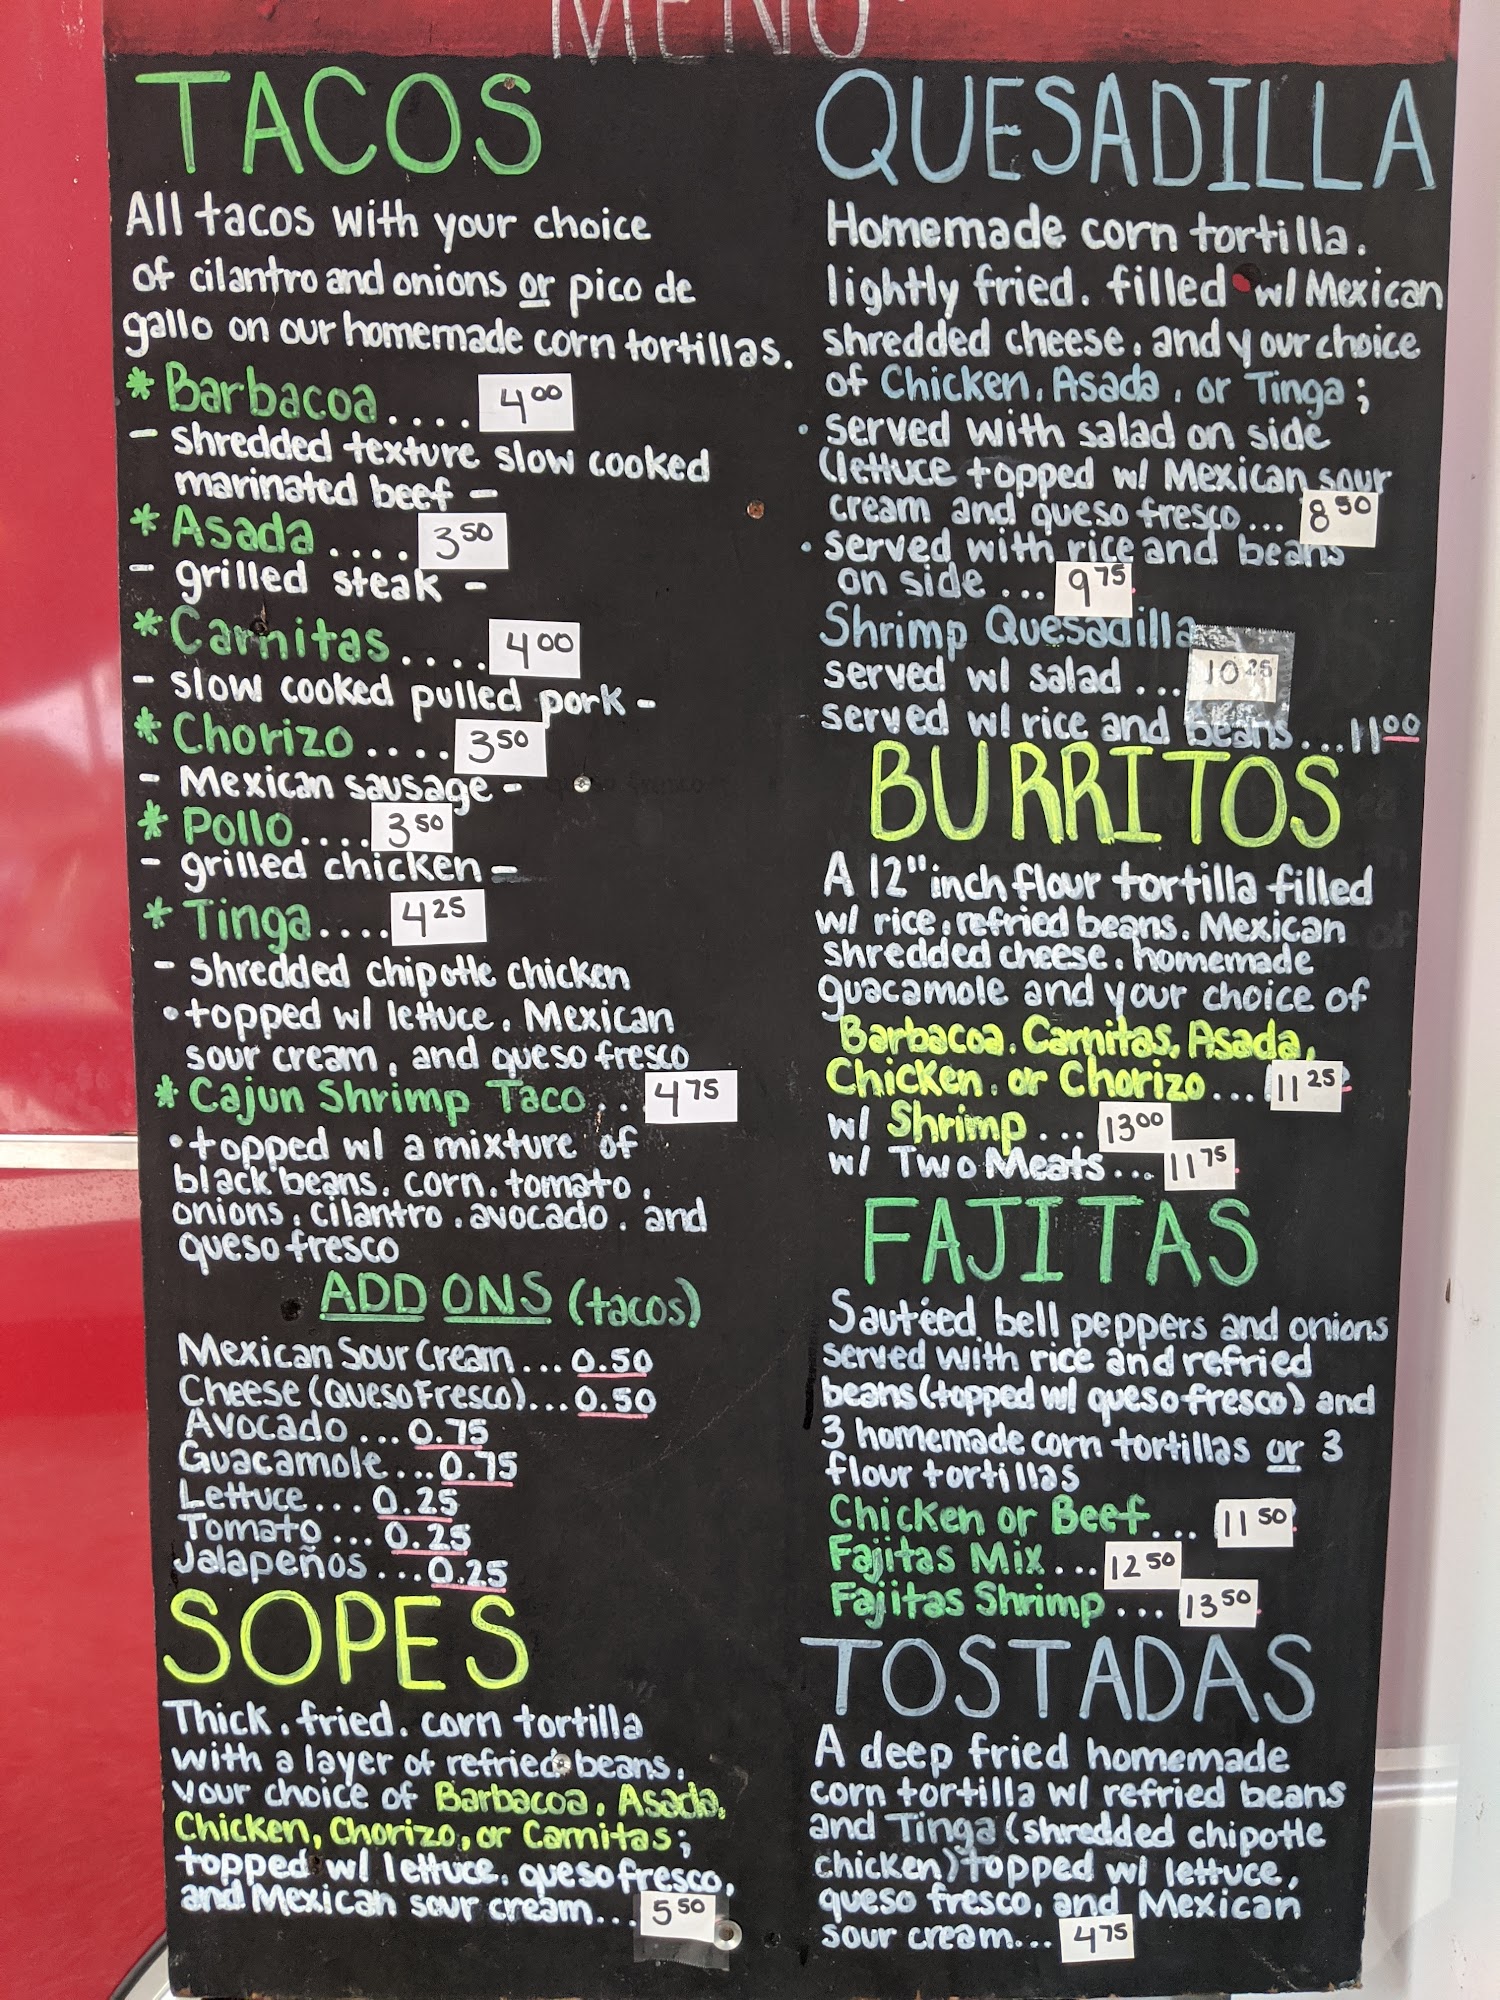 MENU
TACOS
All tacos with your choice
of cilantro and onions or pico de
gallo on our homemade corn tortillas.
* Barbacoa.... 4.00
- shredded texture slow cooked
marinated beef -
* Asada.... 3.50
- grilled steak -
* Carnitas.... 4.00
- slow cooked pulled pork -
* Chorizo.... 3.50
- Mexican sausage -
* Pollo.... 3.50
- grilled chicken -
* Tinga.... 4.25
- shredded chipotle chicken
• topped w/ lettuce, Mexican
sour cream, and queso fresco
* Cajun Shrimp Taco.. 4.75
• topped w/ a mixture of
black beans, corn, tomato,
onions, cilantro, avocado, and
queso fresco
ADD ONS (tacos)
Mexican Sour Cream... 0.50
Cheese (Queso Fresco)... 0.50
Avocado ... 0.75
Guacamole... 0.75
Lettuce... 0.25
Tomato... 0.25
Jalapeños ... 0.25
SOPES
Thick, fried, corn tortilla
with a layer of refried beans,
your choice of Barbacoa, Asada,
Chicken, Chorizo, or Carnitas;
topped w/ lettuce, queso fresco,
and Mexican sour cream... 5.50
QUESADILLA
Homemade corn tortilla.
lightly fried. filled w/ Mexican
shredded cheese, and your choice
of Chicken, Asada, or Tinga;
• served with salad on side
(lettuce topped w/ Mexican sour
cream and queso fresco... 8.50
• served with rice and beans
on side ... 9.75
Shrimp Quesadilla
served w/ salad ... 10.25
served w/ rice and beans...11.00
BURRITOS
A 12" inch flour tortilla filled
w/ rice, refried beans, Mexican
shredded cheese, homemade
guacamole and your choice of
Barbacoa, Carnitas, Asada,
Chicken, or Chorizo... 11.25
w/ Shrimp... 13.00
w/ Two Meats... 11.75
FAJITAS
Sautéed bell peppers and onions
served with rice and refried
beans (topped w/ queso fresco) and
3 homemade corn tortillas or 3
flour tortillas
Chicken or Beef... 11.50
Fajitas Mix... 12.50
Fajitas Shrimp... 13.50
TOSTADAS
A deep fried homemade
corn tortilla w/ refried beans
and Tinga (shredded chipotle
chicken) topped w/ lettuce,
queso fresco, and Mexican
sour cream... 4.75